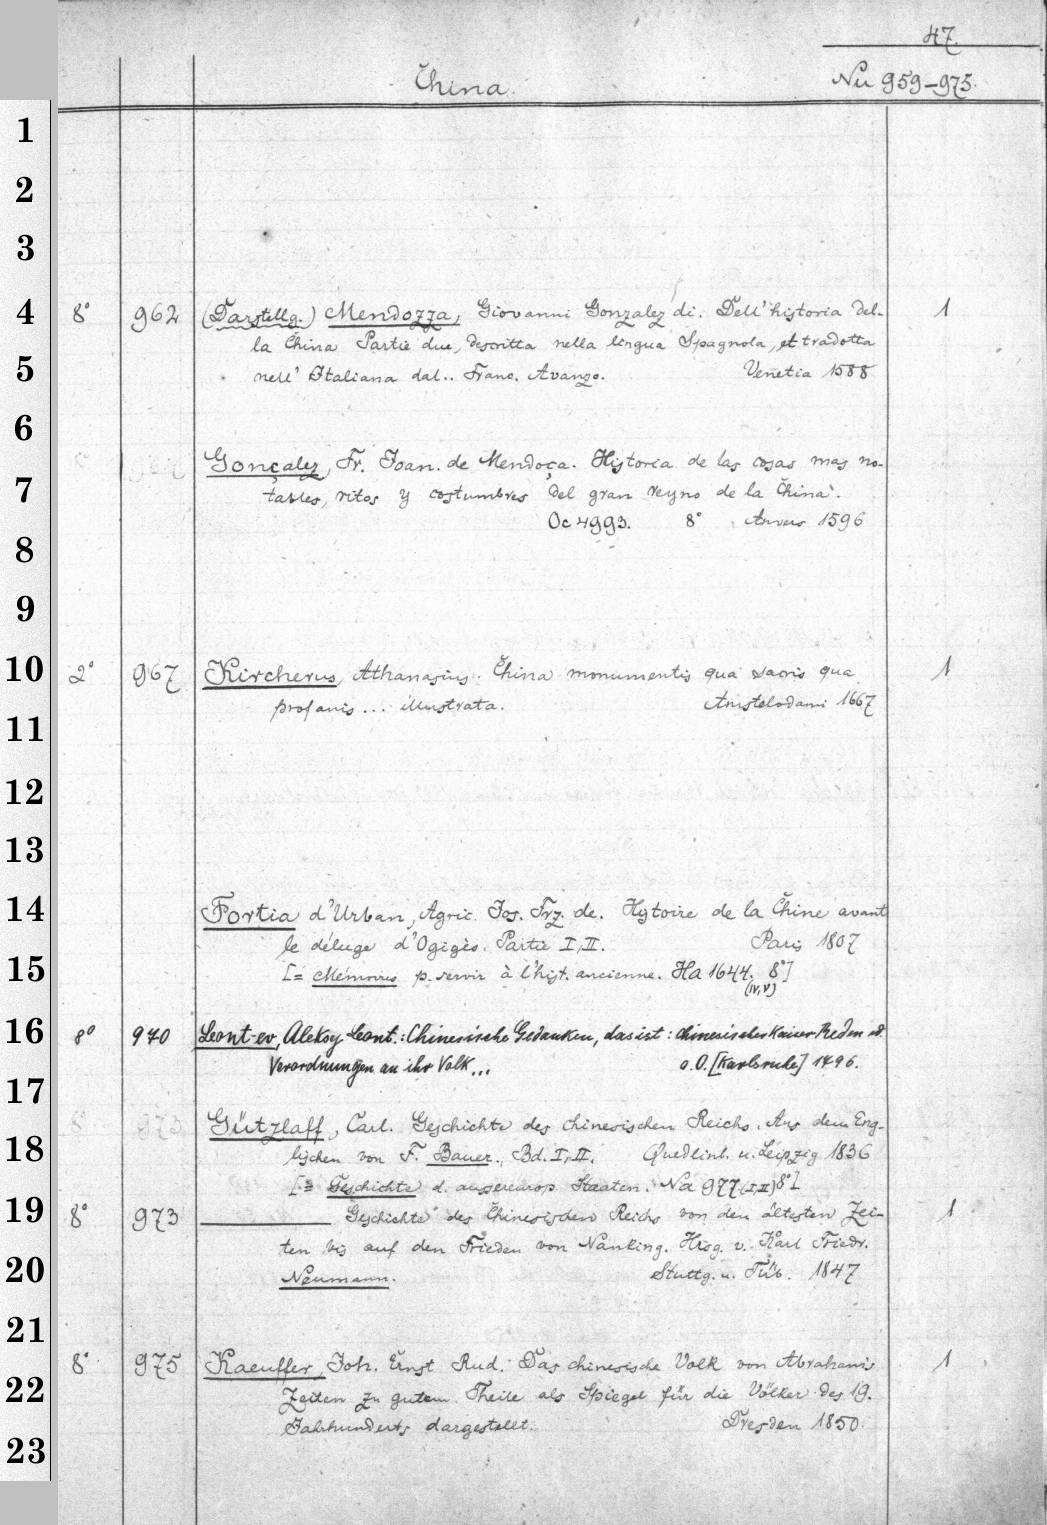 47.
China
Nu 959–975.
1
2
3
4
8° 962 (Darstellg.) Mendozza, Giovanni Gonzalez di. Dell' historia del- 1
la China Partie due, descritta nella lingua Spagnola, et tradotta
5
nell' Italiana dal.. Franc. Avanzo. Venetia 1588
6
Gonçalez, Fr. Joan. de Mendoça. Historia de las cosas mas no-
7
tables, ritos y costumbres del gran reyno de la China.
Oc 4993. 8° Anvers 1596
8
9
10
2° 967 Kircherus, Athanasius. China monumentis qua sacris qua 1
profanis ... illustrata. Amstelodami 1667
11
12
13
14
Fortia d'Urban, Agric. Jos. Frz. de. Hystoire de la Chine avant
le déluge d'Ogigès. Partie I, II. Paris 1807
15
[= Mémoires p. servir à l'hist. ancienne. Ha 1644. 8°]
(IV, V)
16
8° 970 Leont-ev, Aleksy Leont.: Chinesische Gedanken, das ist: chinesischer Kaiser Reden u.
Verordnungen an ihr Volk... o.O. [Karlsruhe] 1796.
17
8° 973
Gützlaff, Carl. Geschichte des chinesischen Reichs. Aus dem Eng-
18
lischen von F. Bauer. Bd. I, II. Quedlinb. u. Leipzig 1836
[= Geschichte d. aussereurop. Staaten. Na 977 (I, II) 8°]
19
8° 973 Geschichte des Chinesischen Reichs von den ältesten Zei- 1
ten bis auf den Frieden von Nanking. Hrsg. v. Karl Friedr.
20
Neumann. Stuttg. u. Tüb. 1847
21
8° 975 Kaeuffer, Joh. Ernst Rud. Das chinesische Volk von Abrahams 1
22
Zeiten zu gutem Theile als Spiegel für die Völker des 19.
Jahrhunderts dargestellt. Dresden 1850.
23